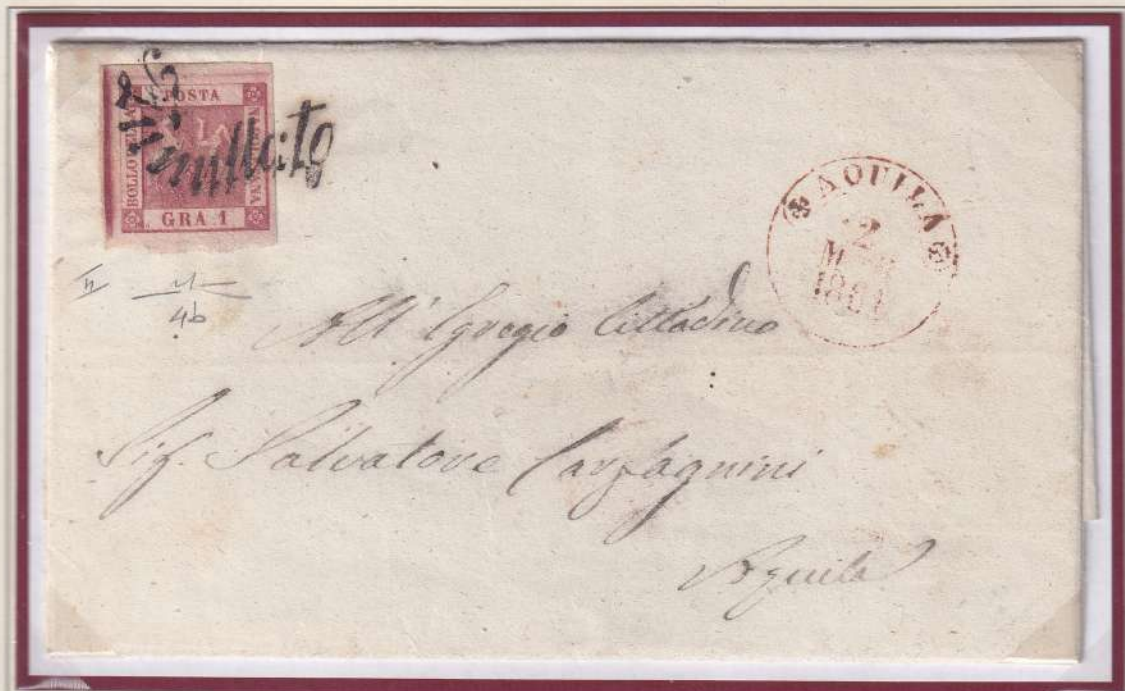 POSTA
BOLLO
NAPOLETANA
GRA 1
annullato
AQUILA
2
1861
II
4b
All' Egregio Cittadino
Sig. Salvatore Carfagnini
Aquila